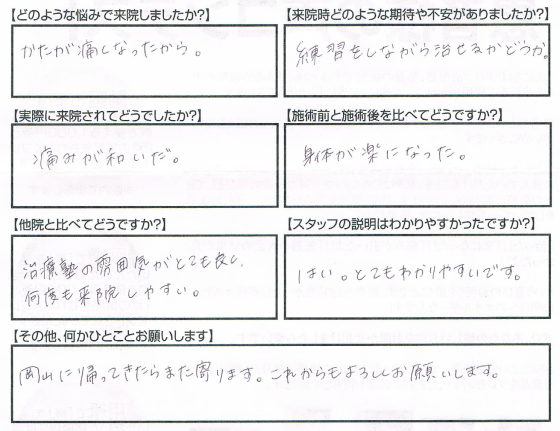 【どのような悩みで来院しましたか?】
かたが痛くなったから。
【来院時どのような期待や不安がありましたか?】
練習をしながら治せるかどうか。
【実際に来院されてどうでしたか?】
痛みが和いだ。
【施術前と施術後を比べてどうですか?】
身体が楽になった。
【他院と比べてどうですか?】
治療塾の雰囲気がとても良く、
何度も来院しやすい。
【スタッフの説明はわかりやすかったですか?】
はい。とてもわかりやすいです。
【その他、何かひとことお願いします】
岡山に帰ってきたらまた寄ります。これからもよろしくお願いします。